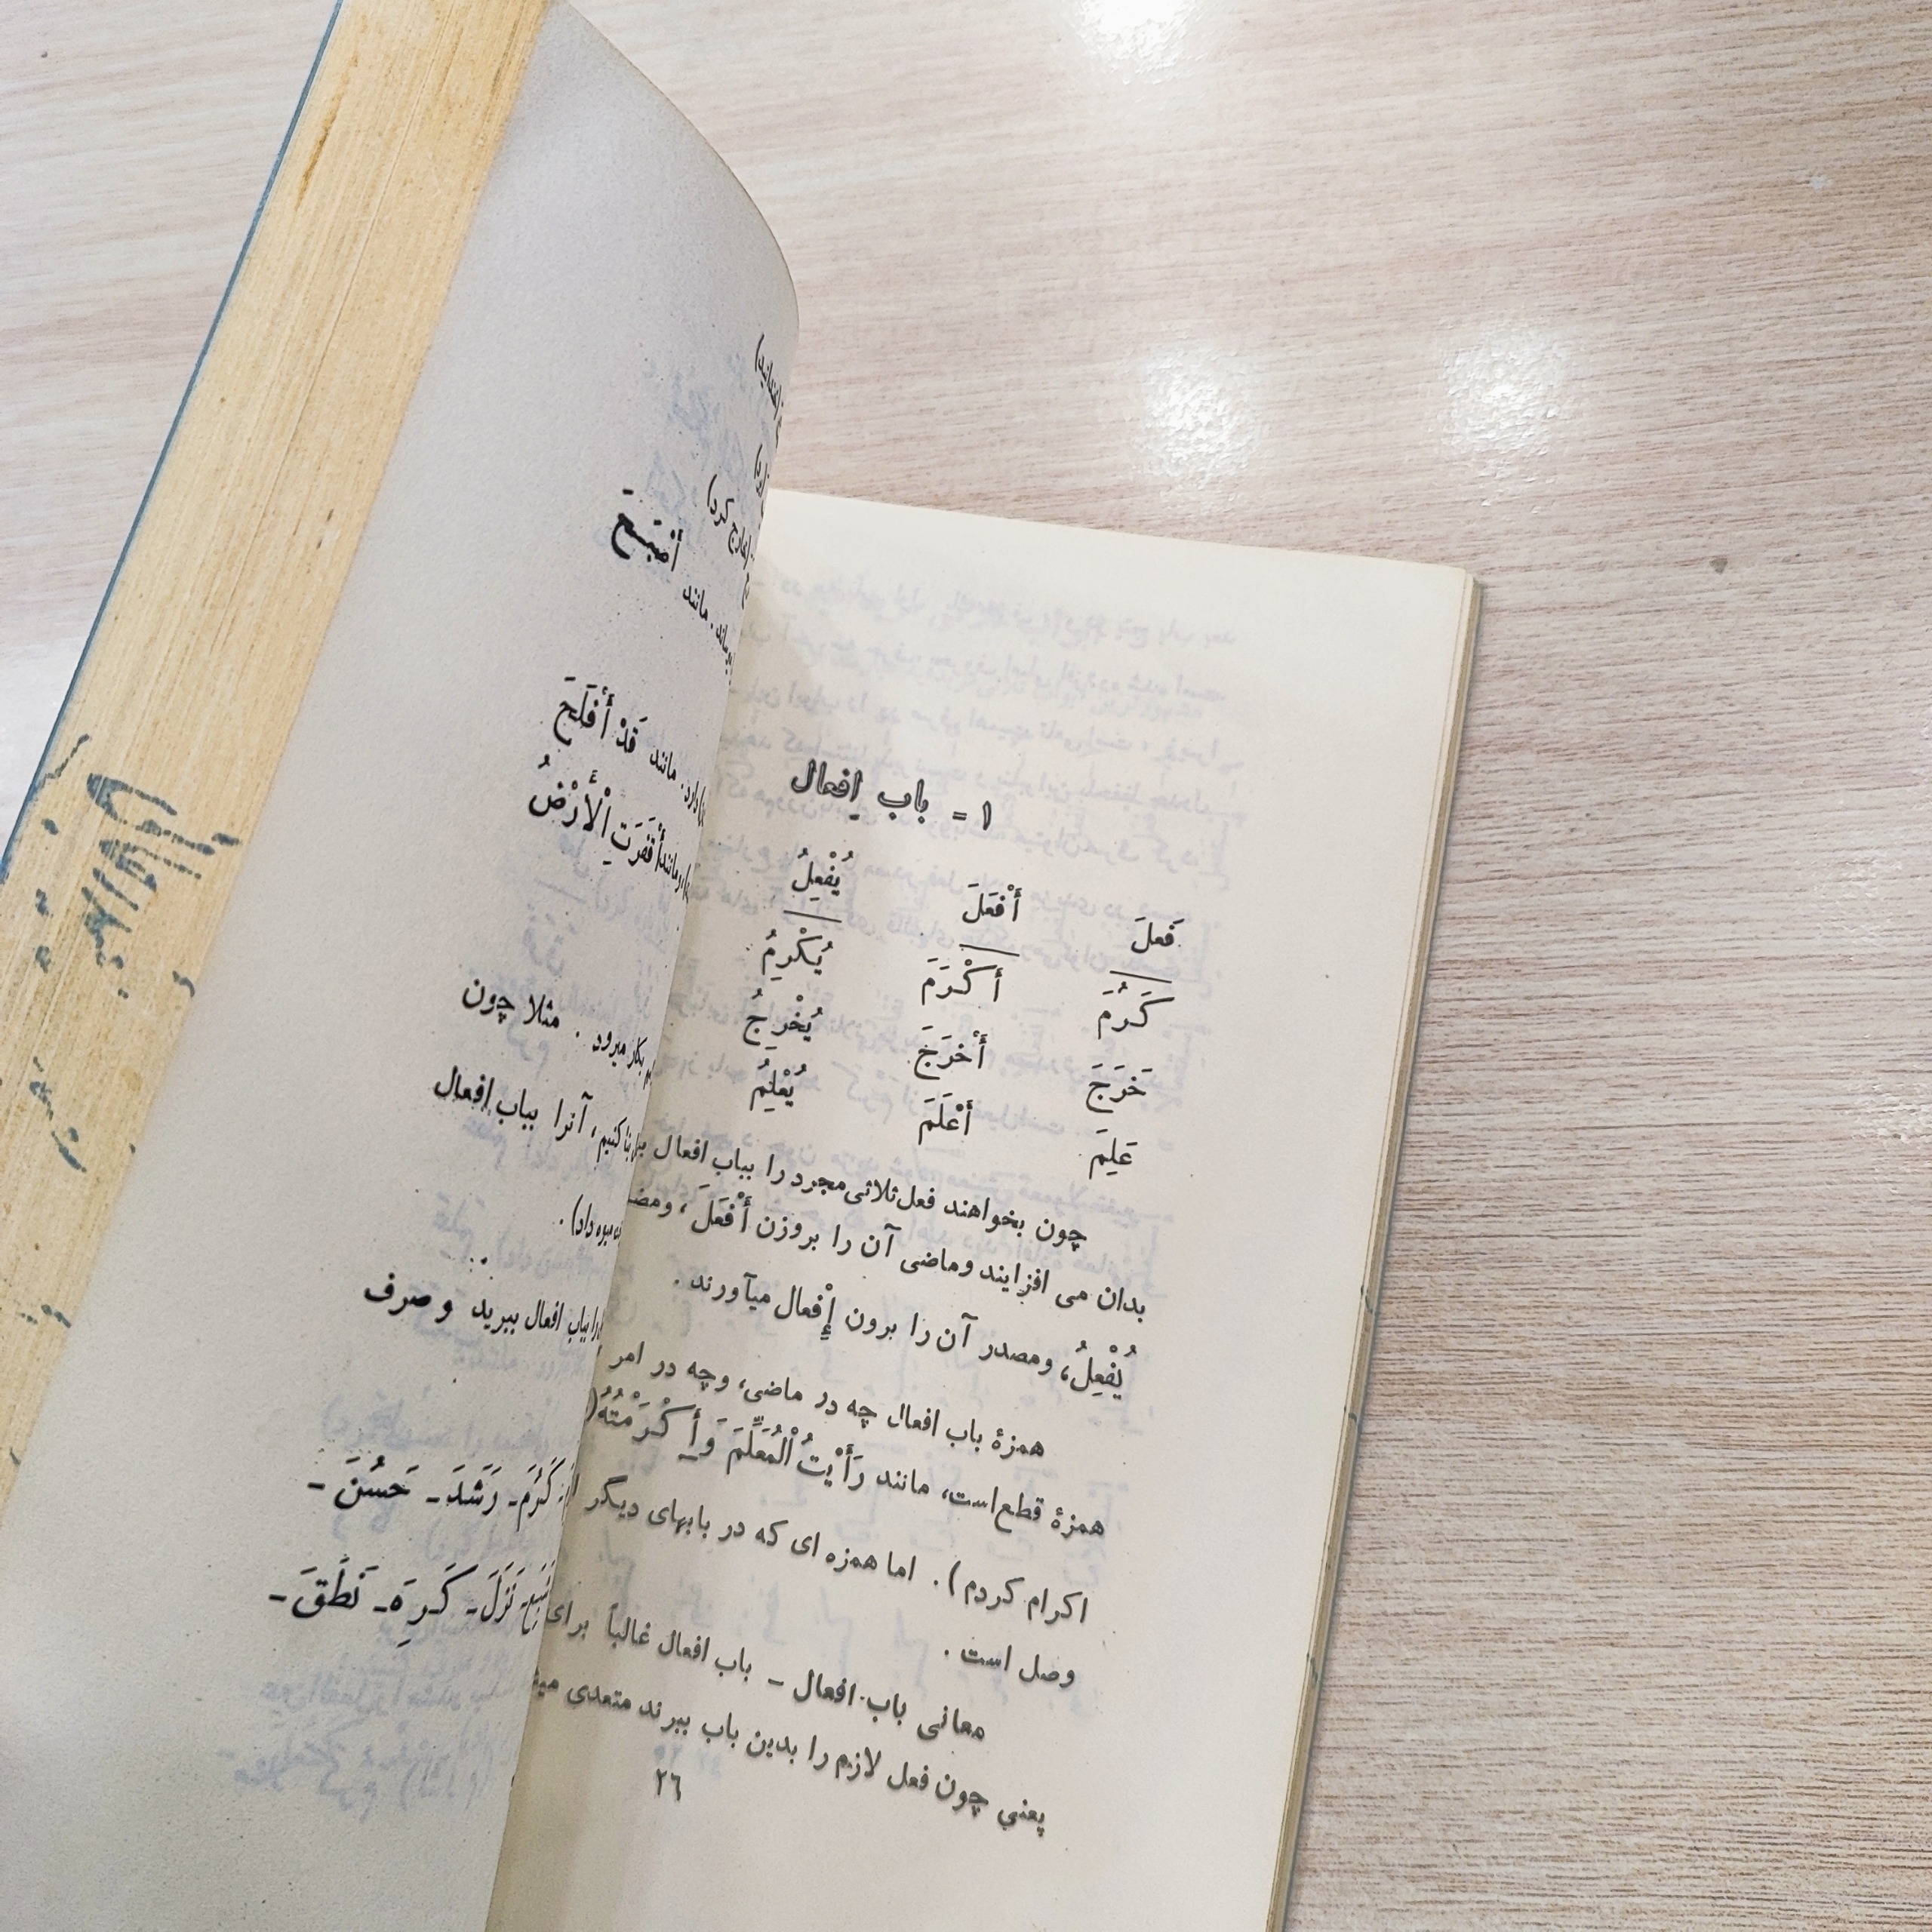 ۱ = باب إفعال
فَعلَ أَفْعَلَ يُفْعِلُ
كَرُمَ أَكْرَمَ يُكْرِمُ
خَرَجَ أَخْرَجَ يُخْرِجُ
عَلِمَ أَعْلَمَ يُعْلِمُ
چون بخواهند فعل ثلاثی مجرد را بباب افعال
بدان می افزایند وماضی آن را بروزن أَفْعَلَ، ومض
يُفْعِلُ، ومصدر آن را برون إِفْعال میآورند.
همزهٔ باب افعال چه در ماضی، وچه در امر
همزهٔ قطع است، مانند رَأَيْتُ الْمُعَلِّمَ وَأَكْرَمْتُهُ(
اکرام کردم). اما همزه ای که در بابهای دیگر
وصل است.
معانی باب افعال - باب افعال غالباً برای
یعنی چون فعل لازم را بدین باب ببرند متعدی میش
۲٦
خارج کرد)
مانند أَصْبَحَ
دارد. مانند قَدْ أَفْلَحَ
مانند أَقْفَرَتِ الْأَرْضُ
بکار میرود. مثلا چون
بنا کنیم، آنرا بباب افعال
میوه داد).
را بباب افعال ببرید و صرف
كَرُمَ - رَشَدَ - حَسُنَ -
نَزَلَ - كَرِهَ - نَطَقَ -